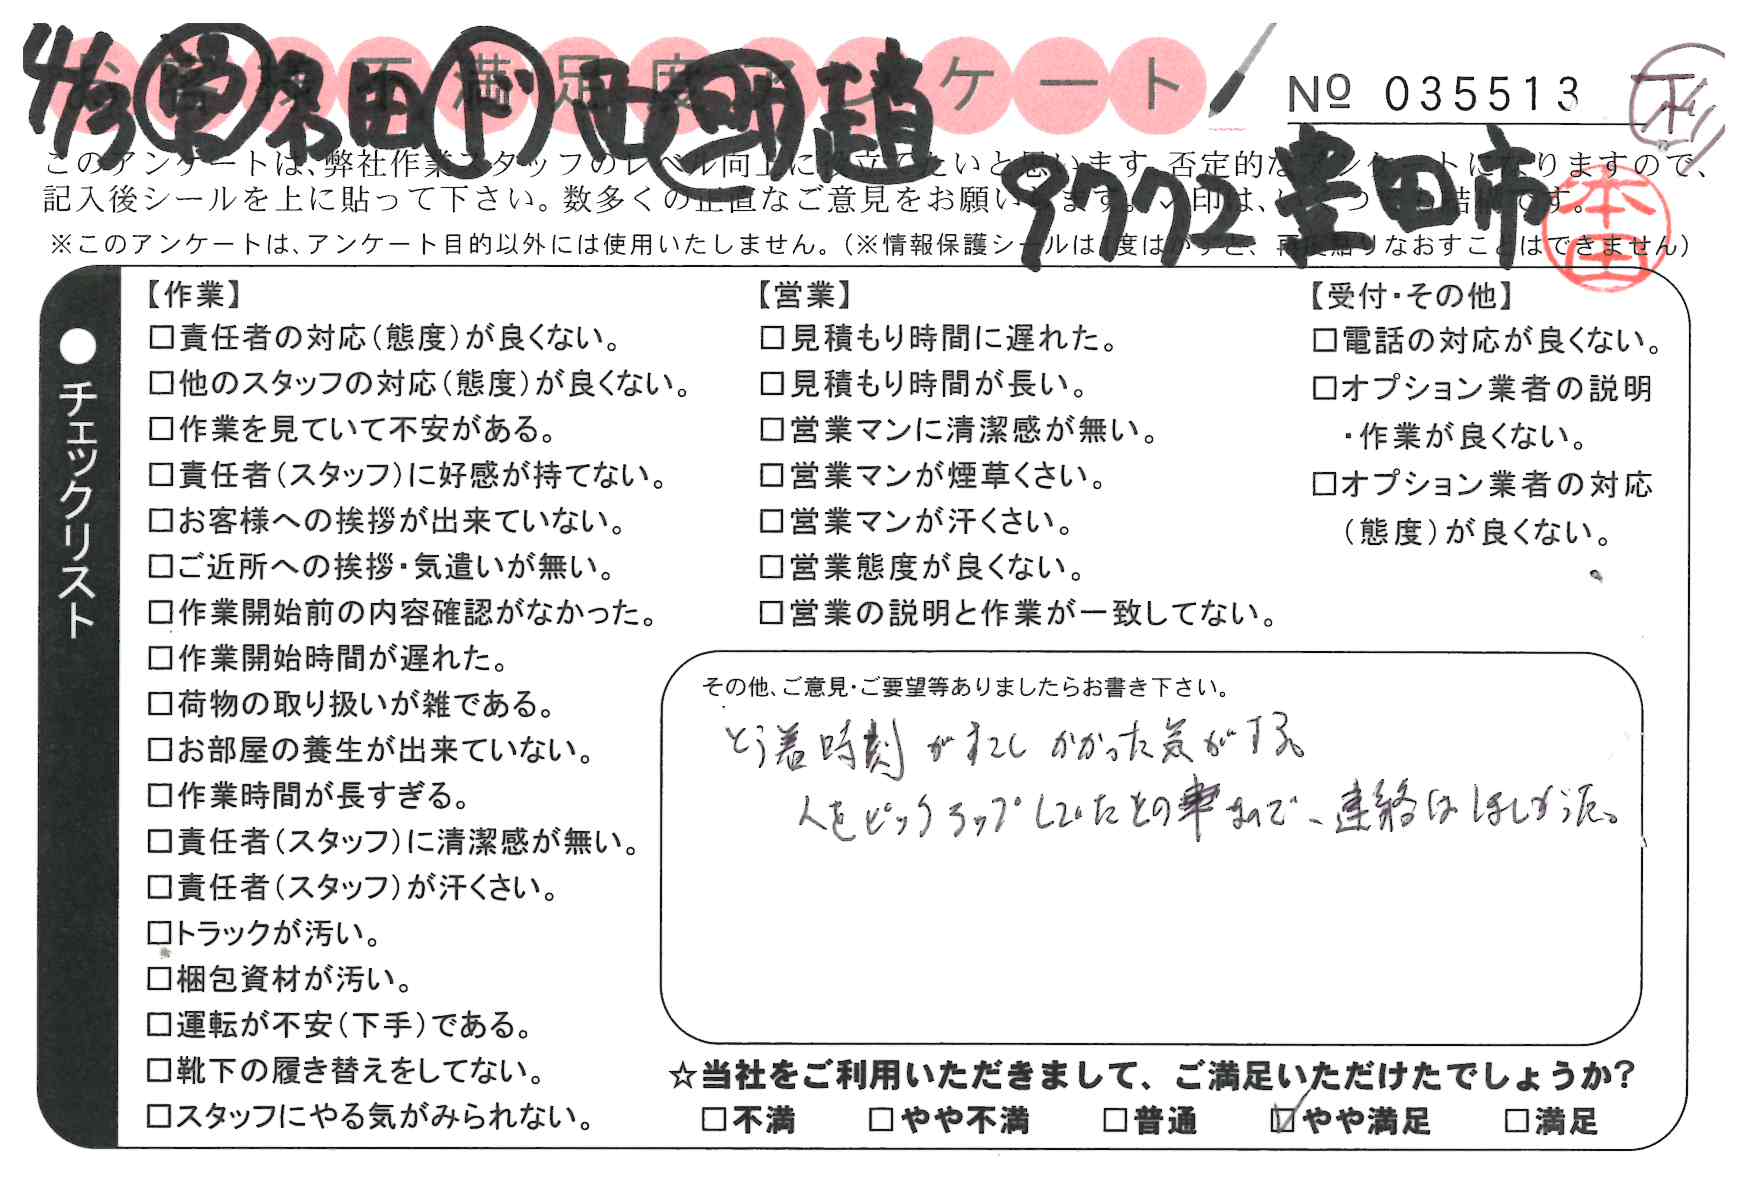 お客様不満足度アンケート
4/13 営 桑田 ド 西 助 趙
№ 035513
9772 豊田市
本田
このアンケートは、弊社作業スタッフのレベル向上に役立てたいと思います。否定的なアンケートになりますので、
記入後シールを上に貼って下さい。数多くの正直なご意見をお願いします。✓印は、いくつでも結構です。
※このアンケートは、アンケート目的以外には使用いたしません。(※情報保護シールは1度はがすと、再度貼りなおすことはできません)
●チェックリスト
【作業】
□責任者の対応(態度)が良くない。
□他のスタッフの対応(態度)が良くない。
□作業を見ていて不安がある。
□責任者(スタッフ)に好感が持てない。
□お客様への挨拶が出来ていない。
□ご近所への挨拶・気遣いが無い。
□作業開始前の内容確認がなかった。
□作業開始時間が遅れた。
□荷物の取り扱いが雑である。
□お部屋の養生が出来ていない。
□作業時間が長すぎる。
□責任者(スタッフ)に清潔感が無い。
□責任者(スタッフ)が汗くさい。
□トラックが汚い。
□梱包資材が汚い。
□運転が不安(下手)である。
□靴下の履き替えをしてない。
□スタッフにやる気がみられない。
【営業】
□見積もり時間に遅れた。
□見積もり時間が長い。
□営業マンに清潔感が無い。
□営業マンが煙草くさい。
□営業マンが汗くさい。
□営業態度が良くない。
□営業の説明と作業が一致してない。
【受付・その他】
□電話の対応が良くない。
□オプション業者の説明
・作業が良くない。
□オプション業者の対応
(態度)が良くない。
その他、ご意見・ご要望等ありましたらお書き下さい。
とう着時刻がすこしかかった気がする。
人をピックアップしていたとの事なので、連絡はほしかった。
☆当社をご利用いただきまして、ご満足いただけたでしょうか?
□不満 □やや不満 □普通 ☑やや満足 □満足